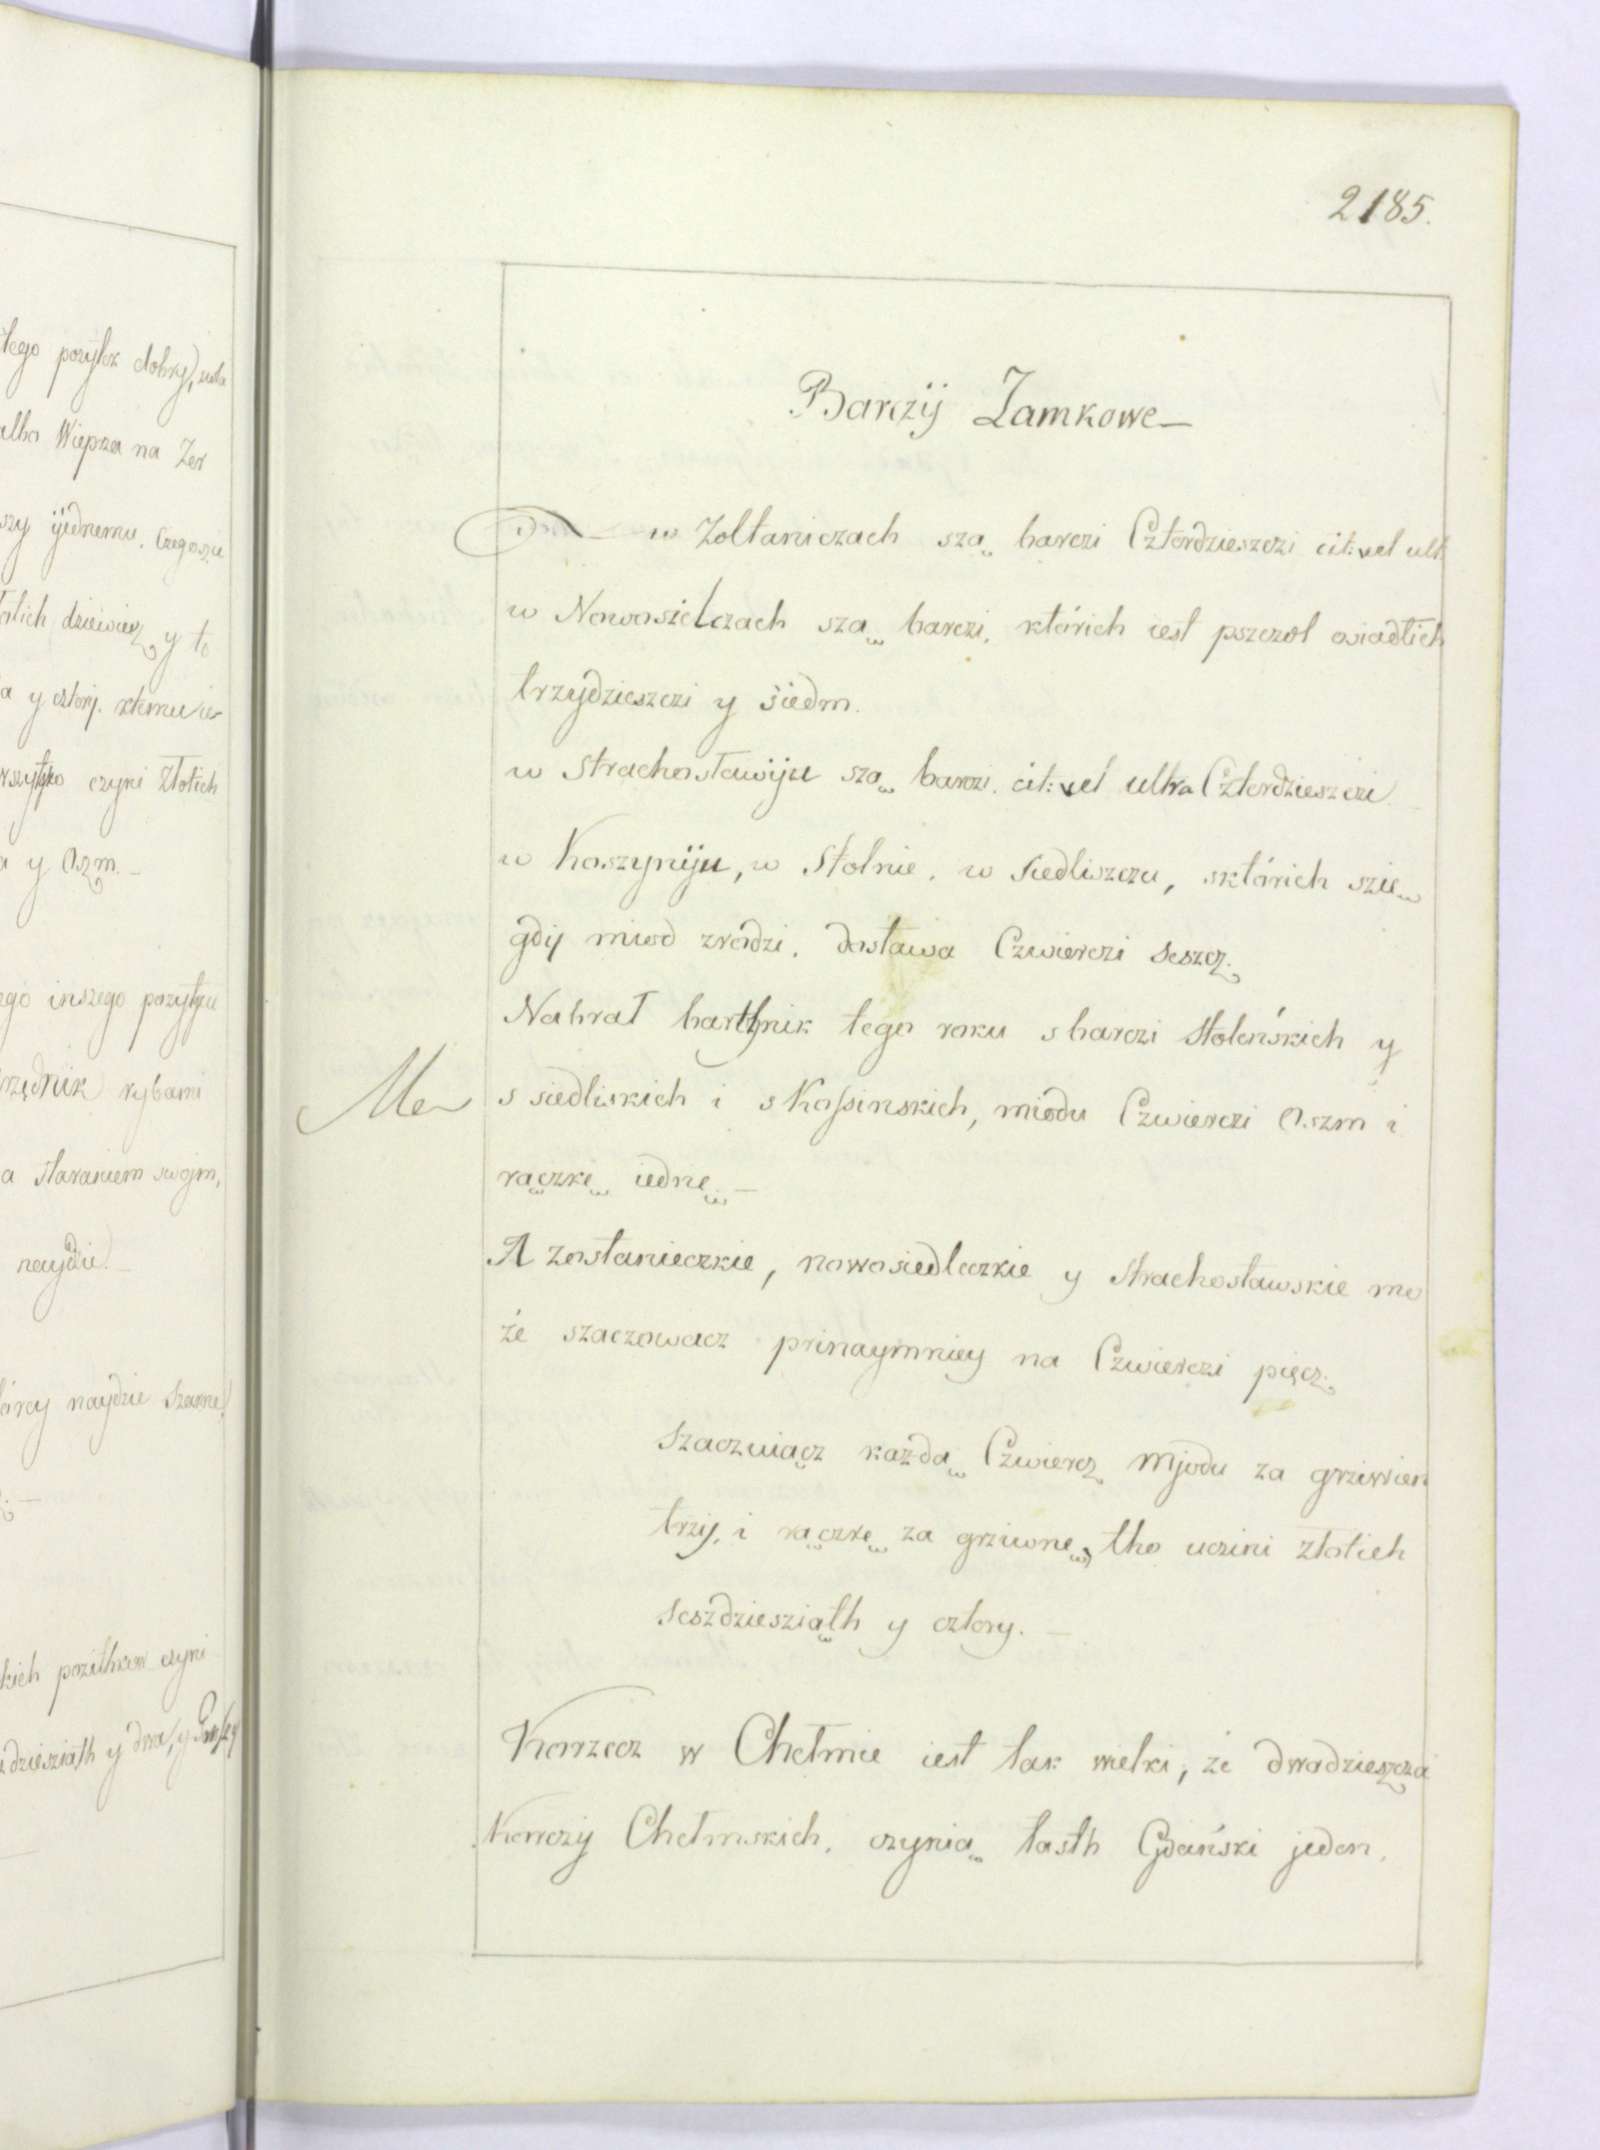 2185.
Barczÿ Zamkowe
w Zołtaniczach szą barczi Czterdzieszczi cit: vel ult
w Nowosielczach szą barczi, ktörich iest pszczoł osiadłich
trzydzieszczi y siedm.
w Strachosławÿu szą barczi. cit: vel ultra Czterdzieszczi
w Koszynÿu, w Stolnie. w Siedliszczu, sktörich szię
gdÿ miod zrodzi, dostawa Czwierczi Seszcz.
Nabrał barthnik tego roku s barczi Stoleńskich y
s siedliskich i s Kossinskich, miodu Czwierczi Oszm i
rączkę iednę.
A zostanieczkie, nowosiedleczkie y Strachosławskie mo
że szaczowacz prinaymniey na Czwierczi pięcz.
Szaczuiącz każdą Czwiercz Mjodu za grziwien
trzÿ, i rączkę za grziwnę, tho uczini złotich
Seszdziesziąth y cztory.
Me
Korzecz w Chełmie iest tak wielki, że dwadzieszcza
Korczÿ Chełmskich, czynią łasth Gdański jeden.
tego pozytek dobry,
albo Wieprza na Zer
szy ÿednemu.
y to
a y cztorÿ.
czyni Złotich
a y Oszm.
inszego pozytku
rzędnik rybami
a staraniem swojm,
naydzie.
naydzie
czyni
dziesziąth y dwa, y